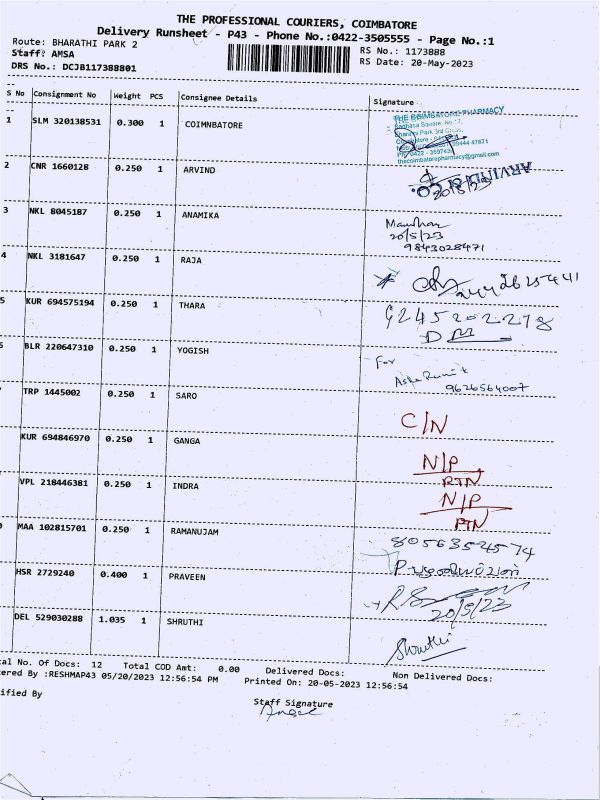 THE PROFESSIONAL COURIERS, COIMBATORE
Delivery Runsheet - P43 - Phone No.:0422-3505555 - Page No.:1
Route: BHARATHI PARK 2 RS No.: 1173888
Staff: AMSA RS Date: 20-May-2023
DRS No.: DCJB117388801
S No Consignment No Weight PCS Consignee Details Signature
1 SLM 320138531 0.300 1 COIMNBATORE
THE COIMBATORE PHARMACY
thecoimbatorepharmacy@gmail.com
2 CNR 1660128 0.250 1 ARVIND
ARVIND & CO.
20/5/23
3 NKL 8045187 0.250 1 ANAMIKA
20/5/23
9843028471
4 NKL 3181647 0.250 1 RAJA
5 KUR 694575194 0.250 1 THARA
9245202278
BLR 220647310 0.250 1 YOGISH
For
9626564007
TRP 1445002 0.250 1 SARO C/N
KUR 694846970 0.250 1 GANGA N/P
RTN
VPL 218446381 0.250 1 INDRA N/P
RTN
MAA 102815701 0.250 1 RAMANUJAM
HSR 2729240 0.400 1 PRAVEEN
20/5/23
DEL 529030288 1.035 1 SHRUTHI Shruthi
al No. Of Docs: 12 Total COD Amt: 0.00 Delivered Docs: Non Delivered Docs:
tered By :RESHMAP43 05/20/2023 12:56:54 PM Printed On: 20-05-2023 12:56:54
ified By
Staff Signature